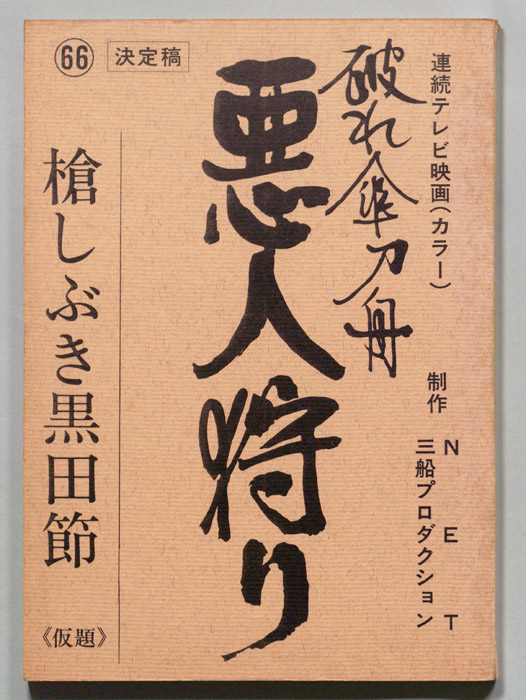 連続テレビ映画(カラー)
制作
NET
三船プロダクション
破れ傘刀舟
悪人狩り
66
決定稿
槍しぶき黒田節
《仮題》